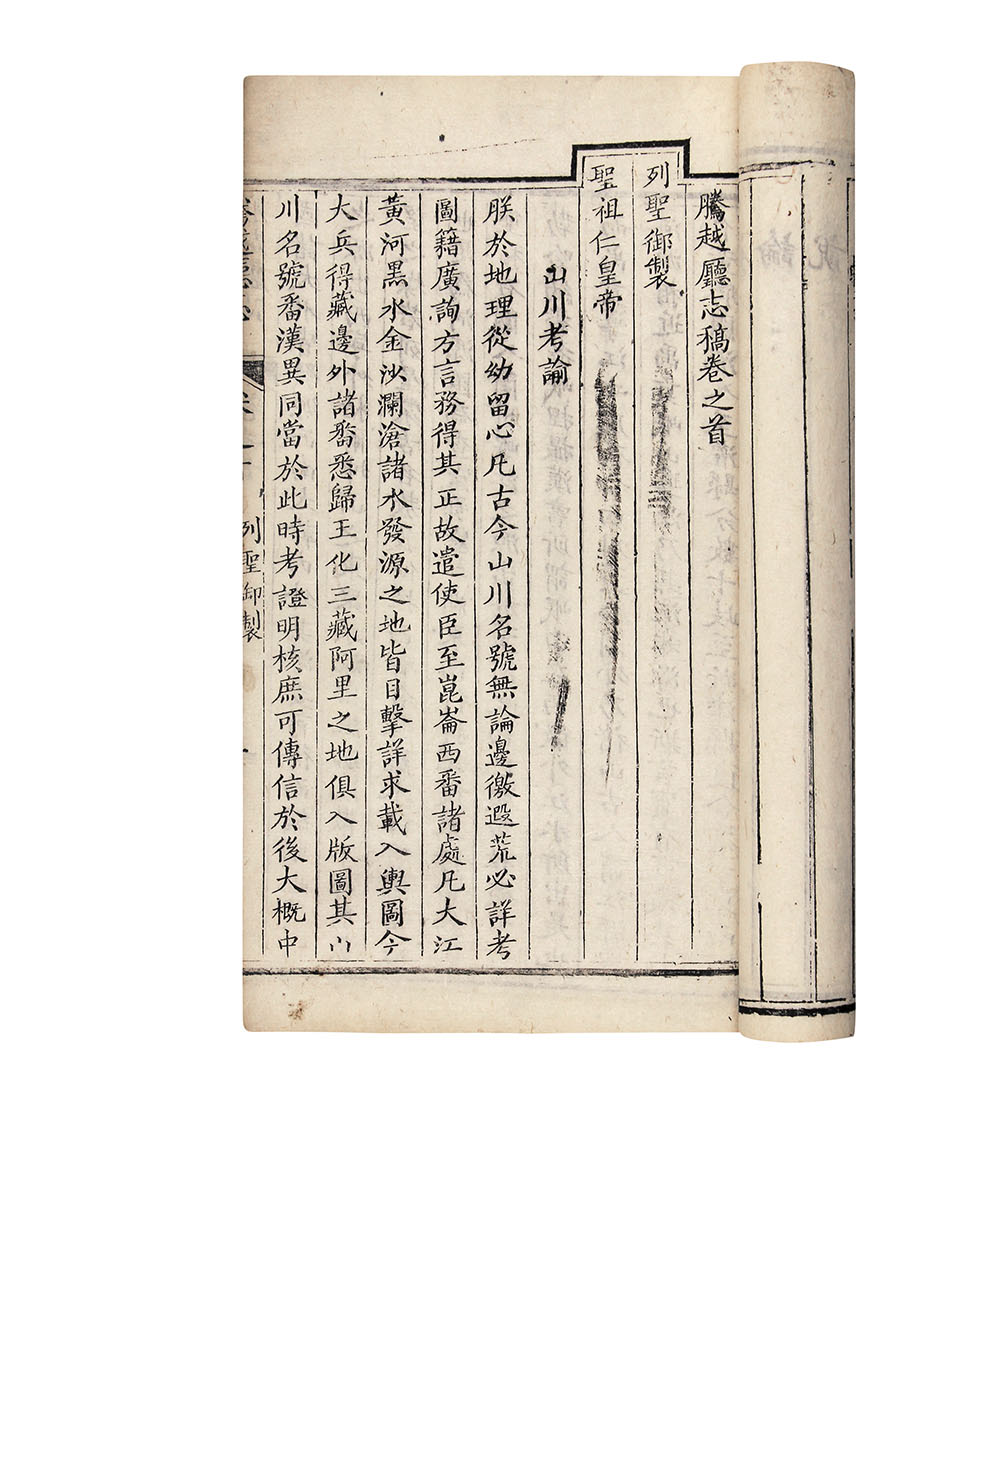 騰越廳志稿卷之首
列聖御製
聖祖仁皇帝
山川考論
朕於地理從幼留心凡古今山川名號無論邊徼遐荒必詳考
圖籍廣詢方言務得其正故遣使臣至崑崙西番諸處凡大江
黃河黑水金沙瀾滄諸水發源之地皆目擊詳求載入輿圖今
大兵得藏邊外諸番悉歸王化三藏阿里之地俱入版圖其山
川名號番漢異同當於此時考證明核庶可傳信於後大概中
列聖御製